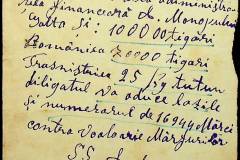 la financiară de Monopoluri
Galta și: 100000 țigări
România 70000 țigări
Trasnistria 25 kg tutun
diligatul va aduce lăzile
și numerarul de 16944 Mărci
contra valoarie Mărfurilor
S.S.